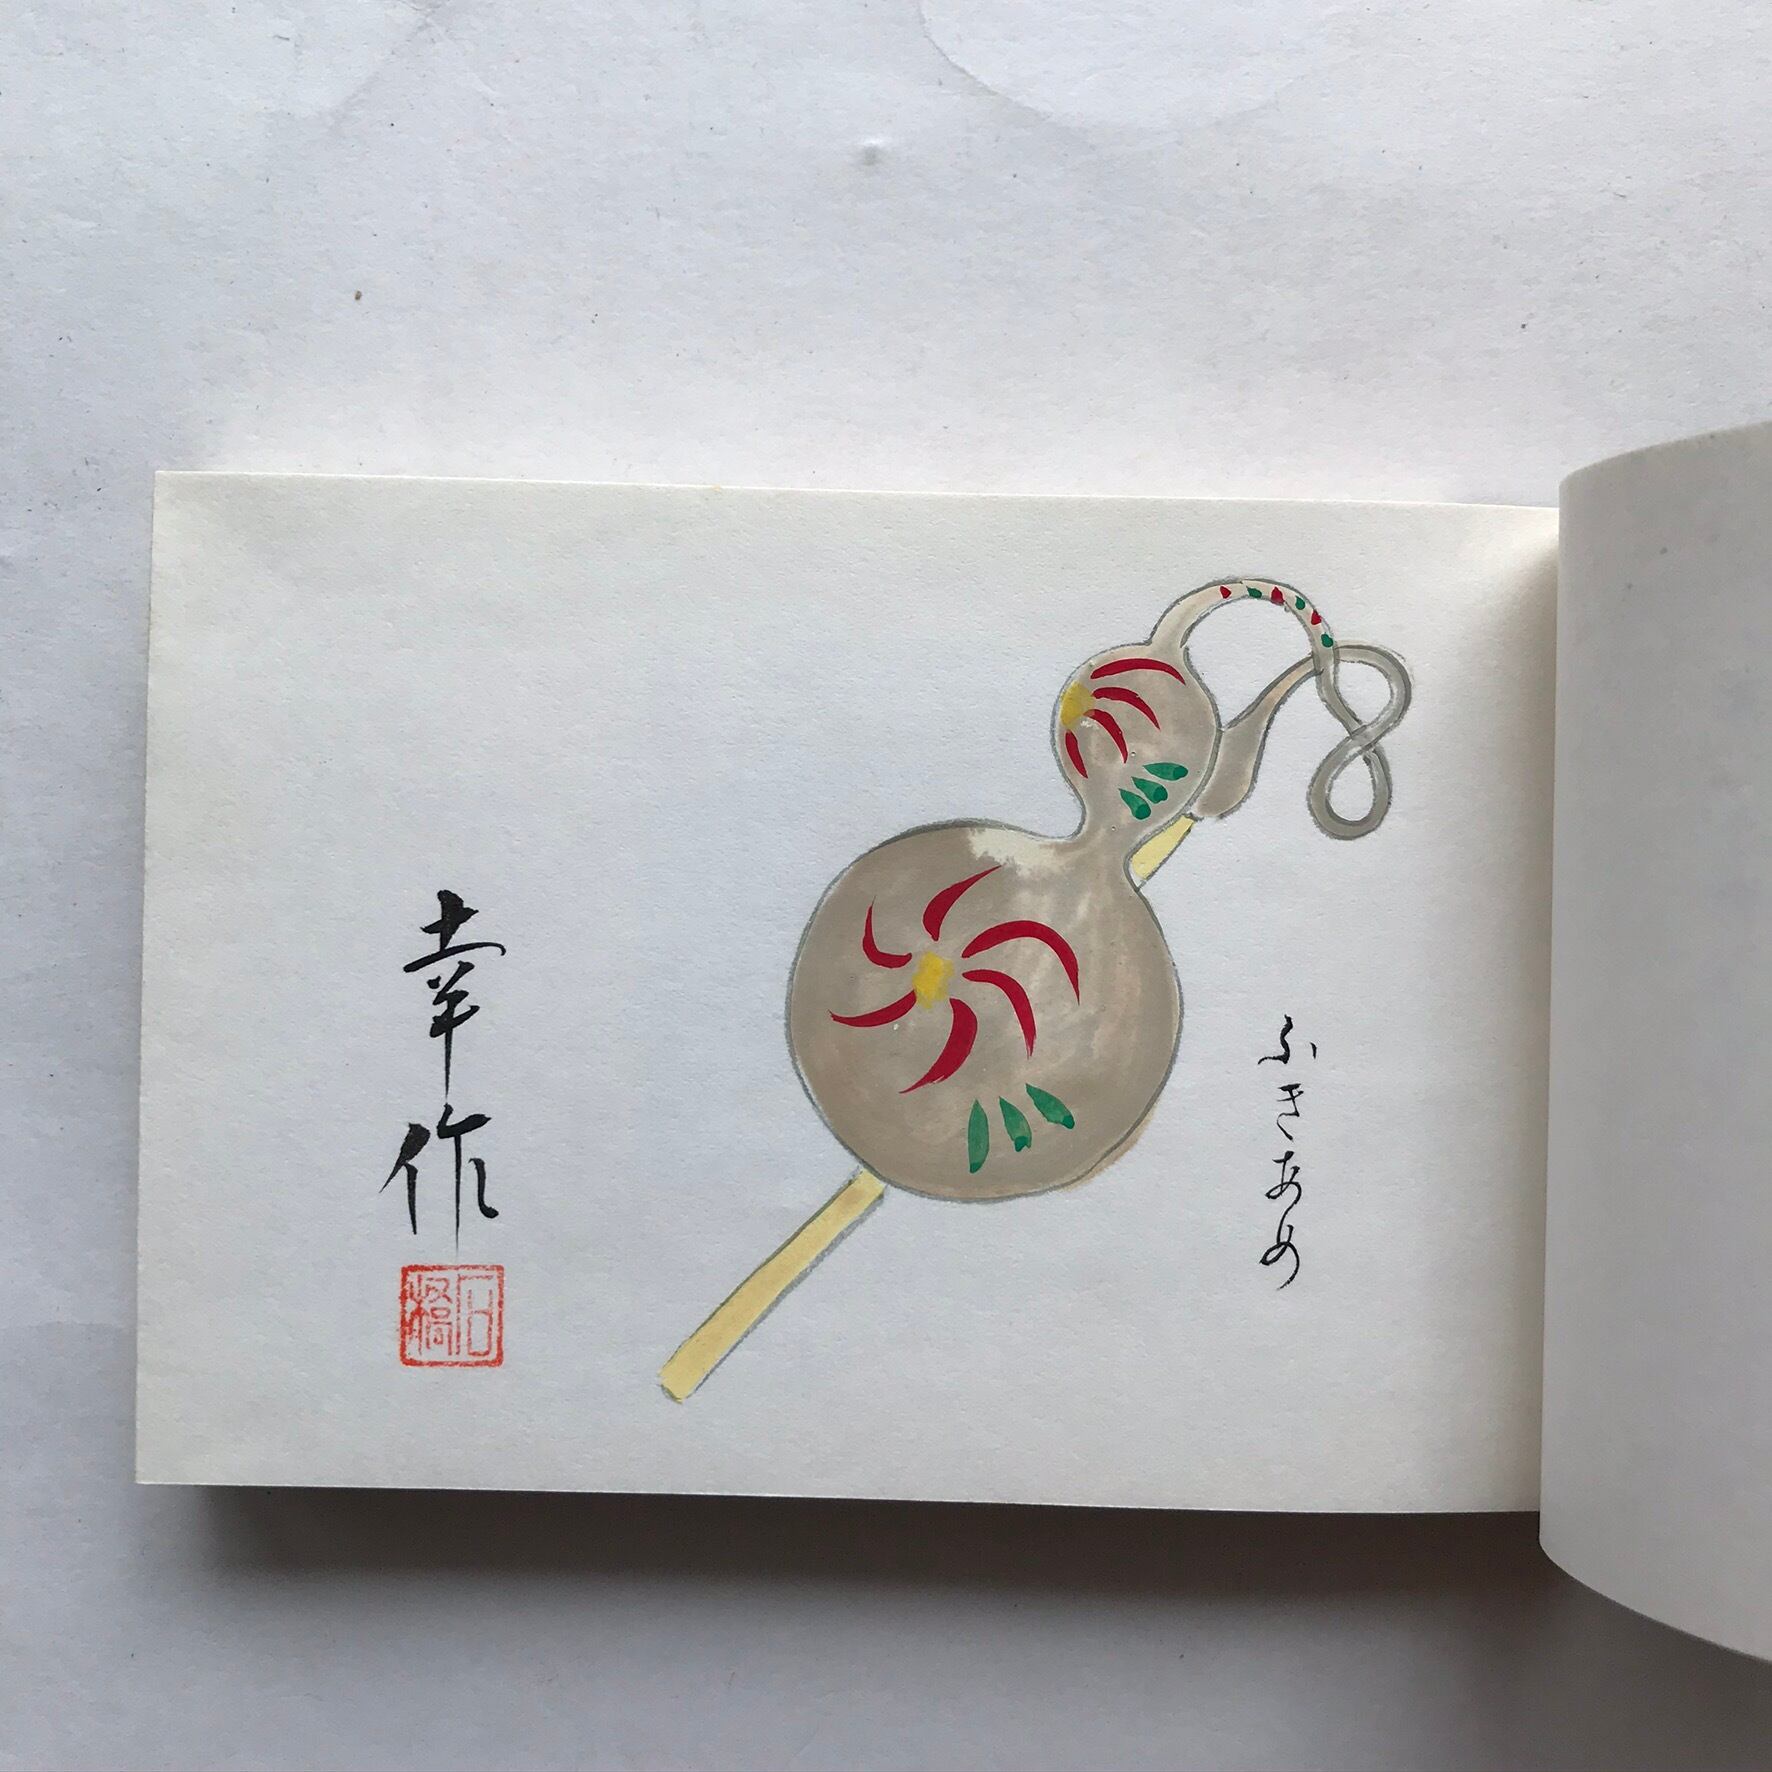 ふきあめ
幸作
石橋